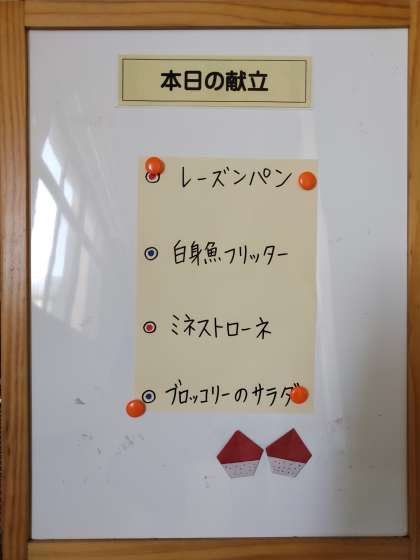 本日の献立
レーズンパン
白身魚フリッター
ミネストローネ
ブロッコリーのサラダ